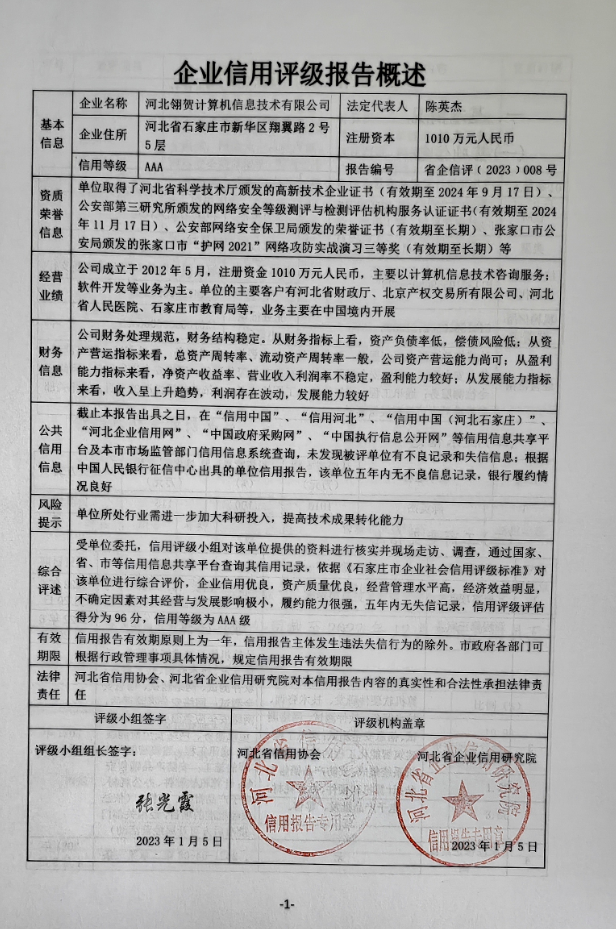 企业信用评级报告概述
基本
信息
企业名称
河北翎贺计算机信息技术有限公司
法定代表人
陈英杰
企业住所
河北省石家庄市新华区翔翼路2号
5层
注册资本
1010万元人民币
信用等级
AAA
报告编号
省企信评﹝2023﹞008号
资质
荣誉
信息
单位取得了河北省科学技术厅颁发的高新技术企业证书（有效期至2024年9月17日）、
公安部第三研究所颁发的网络安全等级测评与检测评估机构服务认证证书（有效期至2024
年11月17日）、公安部网络安全保卫局颁发的荣誉证书（有效期至长期）、张家口市公
安局颁发的张家口市“护网2021”网络攻防实战演习三等奖（有效期至长期）等
经营
业绩
公司成立于2012年5月，注册资金1010万元人民币，主要以计算机信息技术咨询服务；
软件开发等业务为主。单位的主要客户有河北省财政厅、北京产权交易所有限公司、河北
省人民医院、石家庄市教育局等，业务主要在中国境内开展
财务
信息
公司财务处理规范，财务结构稳定。从财务指标上看，资产负债率低，偿债风险低；从资
产营运指标来看，总资产周转率、流动资产周转率一般，公司资产营运能力尚可；从盈利
能力指标来看，净资产收益率、营业收入利润率不稳定，盈利能力较好；从发展能力指标
来看，收入呈上升趋势，利润存在波动，发展能力较好
公共
信用
信息
截止本报告出具之日，在“信用中国”、“信用河北”、“信用中国（河北石家庄）”、
“河北企业信用网”、“中国政府采购网”、“中国执行信息公开网”等信用信息共享平
台及本市市场监管部门信用信息系统查询，未发现被评单位有不良记录和失信信息；根据
中国人民银行征信中心出具的单位信用报告，该单位五年内无不良信息记录，银行履约情
况良好
风险
提示
单位所处行业需进一步加大科研投入，提高技术成果转化能力
综合
评述
受单位委托，信用评级小组对该单位提供的资料进行核实并现场走访、调查，通过国家、
省、市等信用信息共享平台查询其信用记录，依据《石家庄市企业社会信用评级标准》对
该单位进行综合评价，企业信用优良，资产质量优良，经营管理水平高，经济效益明显，
不确定因素对其经营与发展影响极小，履约能力很强，五年内无失信记录，信用评级评估
得分为96分，信用等级为AAA级
有效
期限
信用报告有效期原则上为一年，信用报告主体发生违法失信行为的除外。市政府各部门可
根据行政管理事项具体情况，规定信用报告有效期限
法律
责任
河北省信用协会、河北省企业信用研究院对本信用报告内容的真实性和合法性承担法律责
任
评级小组签字
评级机构盖章
评级小组组长签字：
张光霞
2023年1月5日
河北省信用协会
河北省信用协会
信用报告专用章
河北省企业信用研究院
河北省企业信用研究院
信用报告专用章
2023年1月5日
-1-